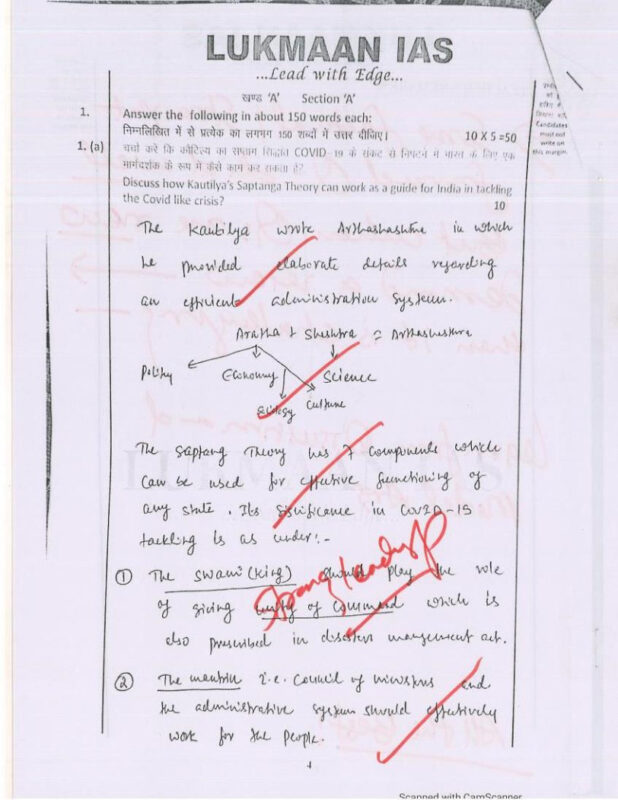 LUKMAAN IAS
...Lead with Edge...
खण्ड 'A' Section 'A'
1. Answer the following in about 150 words each:
निम्नलिखित में से प्रत्येक का लगभग 150 शब्दों में उत्तर दीजिए। 10 X 5 =50
Candidates
must not
write on
this margin.
1. (a) चर्चा करें कि कौटिल्य का सप्तांग सिद्धांत COVID-19 के संकट से निपटने में भारत के लिए एक
मार्गदर्शक के रूप में कैसे काम कर सकता है?
Discuss how Kautilya's Saptanga Theory can work as a guide for India in tackling
the Covid like crisis? 10
The Kautilya wrote Arthashashtra in which
he provided elaborate details regarding
an efficient administration system.
Aratha + Shashtra = Arthashashtra
Polity Economy Science
Culture
The Saptang Theory has 7 components which
can be used for effective functioning of
any state. Its significance in COVID-19
tackling is as under:-
① The Swami (King) should play the role
of giving unity of command which is
also prescribed in disaster management act.
Strong leadership
② The mantrin i.e. Council of ministers and
the administrative system should effectively
work for the people.
4
Scanned with CamScanner